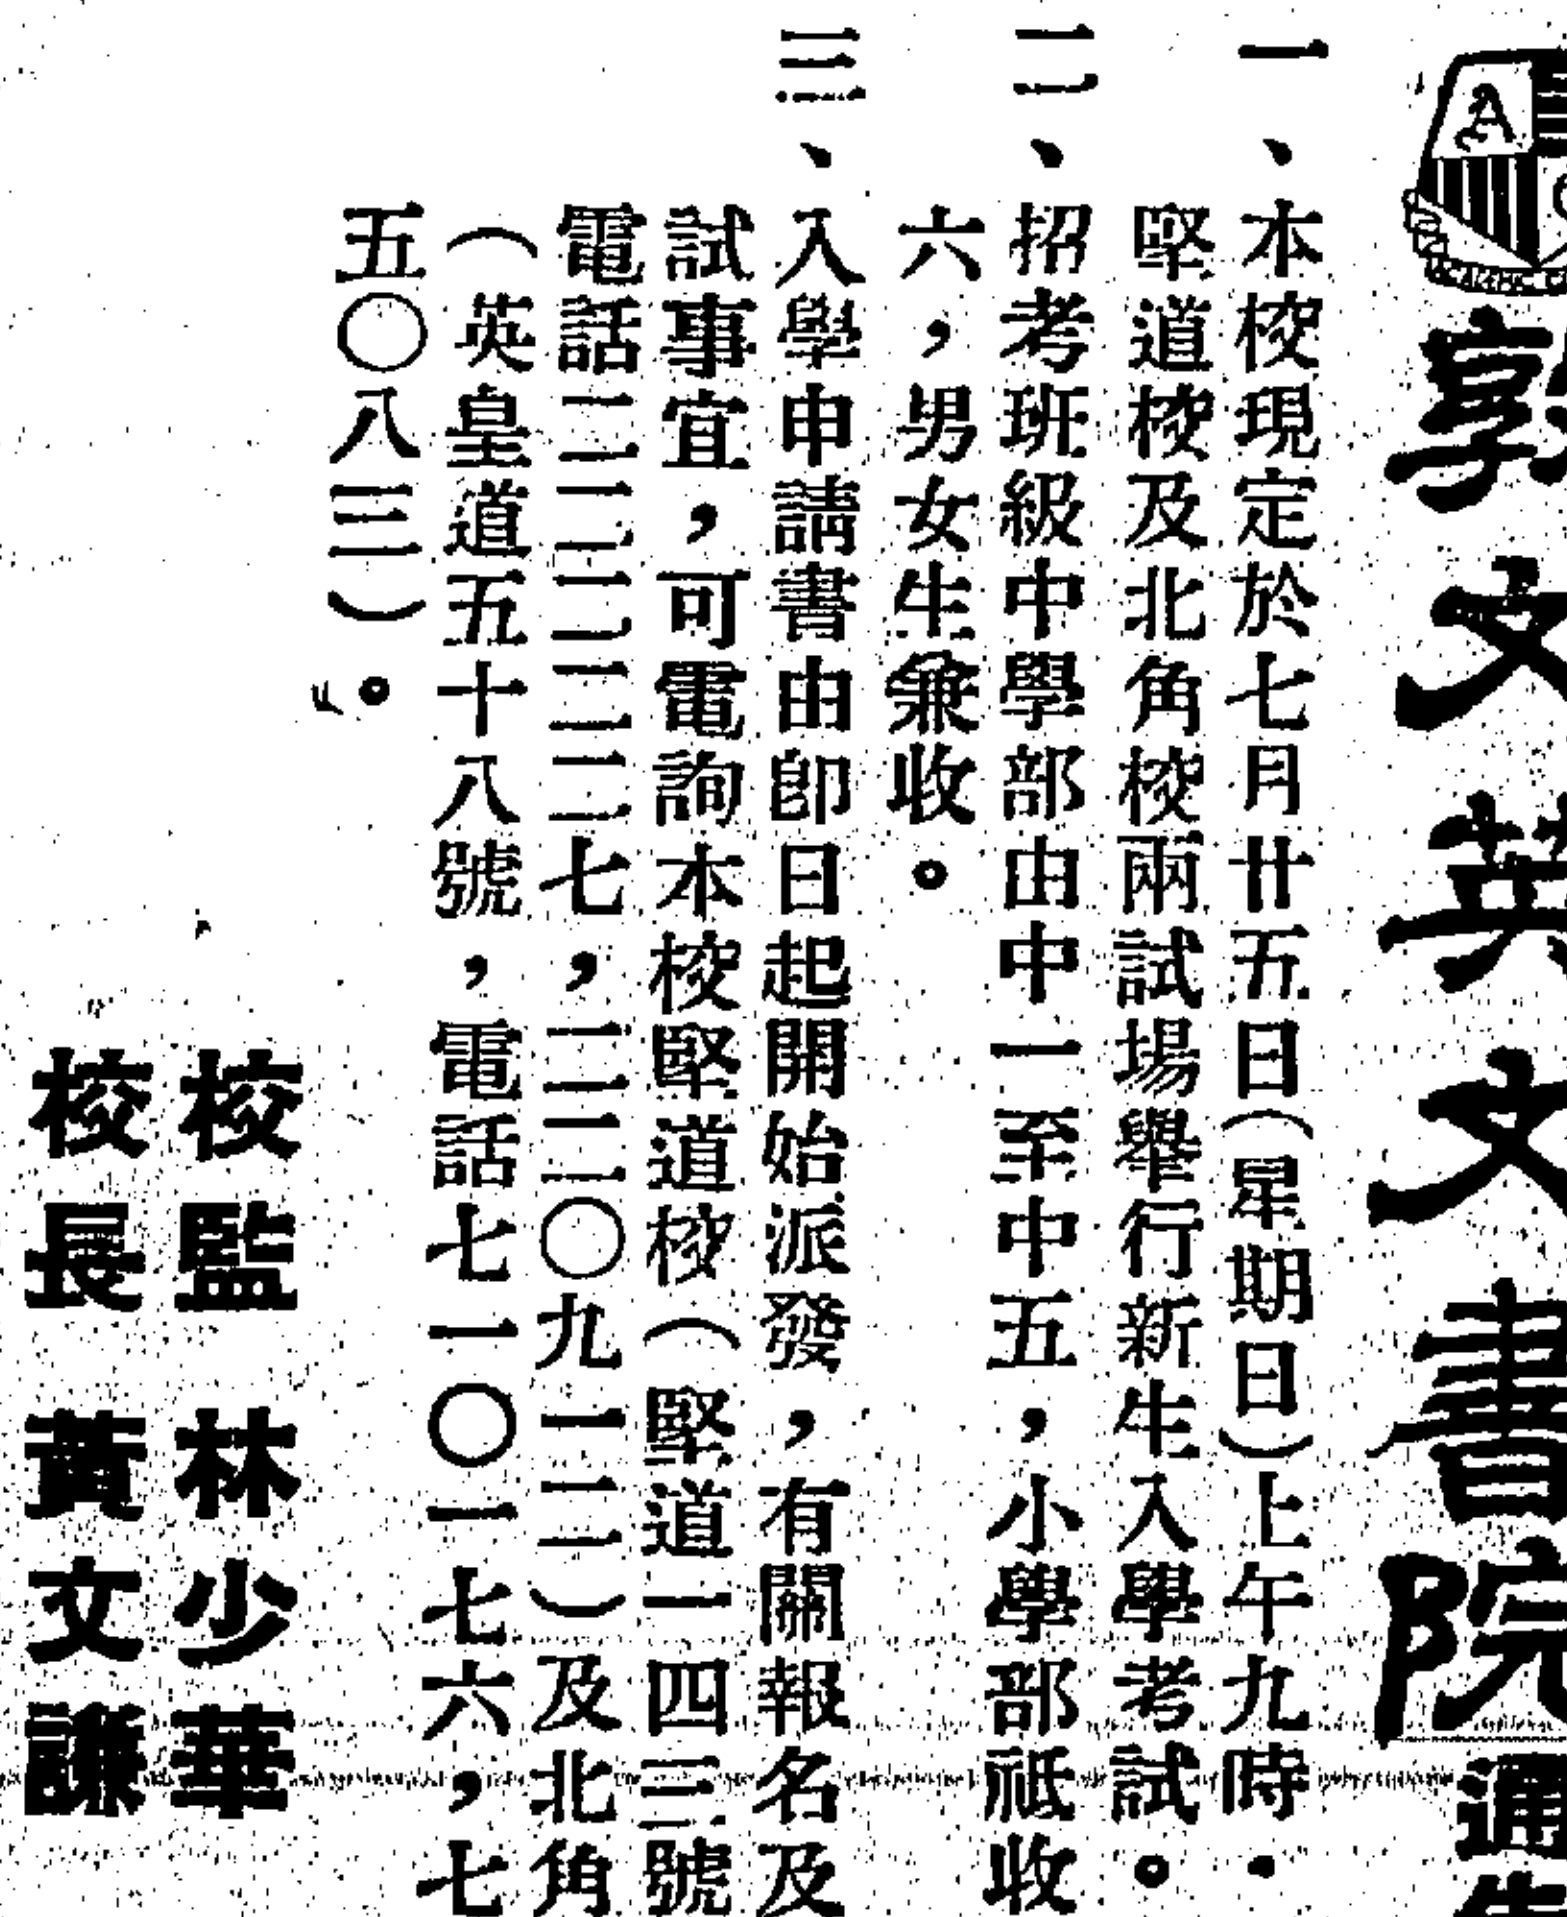 敦文英文書院通告
一、本校現定於七月廿五日（星期日）上午九時．
堅道校及北角校兩試場舉行新生入學考試。
二、招考班級中學部由中一至中五，小學部祗收
六，男女生兼收。
三、入學申請書由卽日起開始派發，有關報名及
試事宜，可電詢本校堅道校（堅道一四三號
電話二二二二二七，二二〇九一二）及北角
（英皇道五十八號，電話七一〇一七六，七
五〇八三）。
校監 林少華
校長 黃文謙